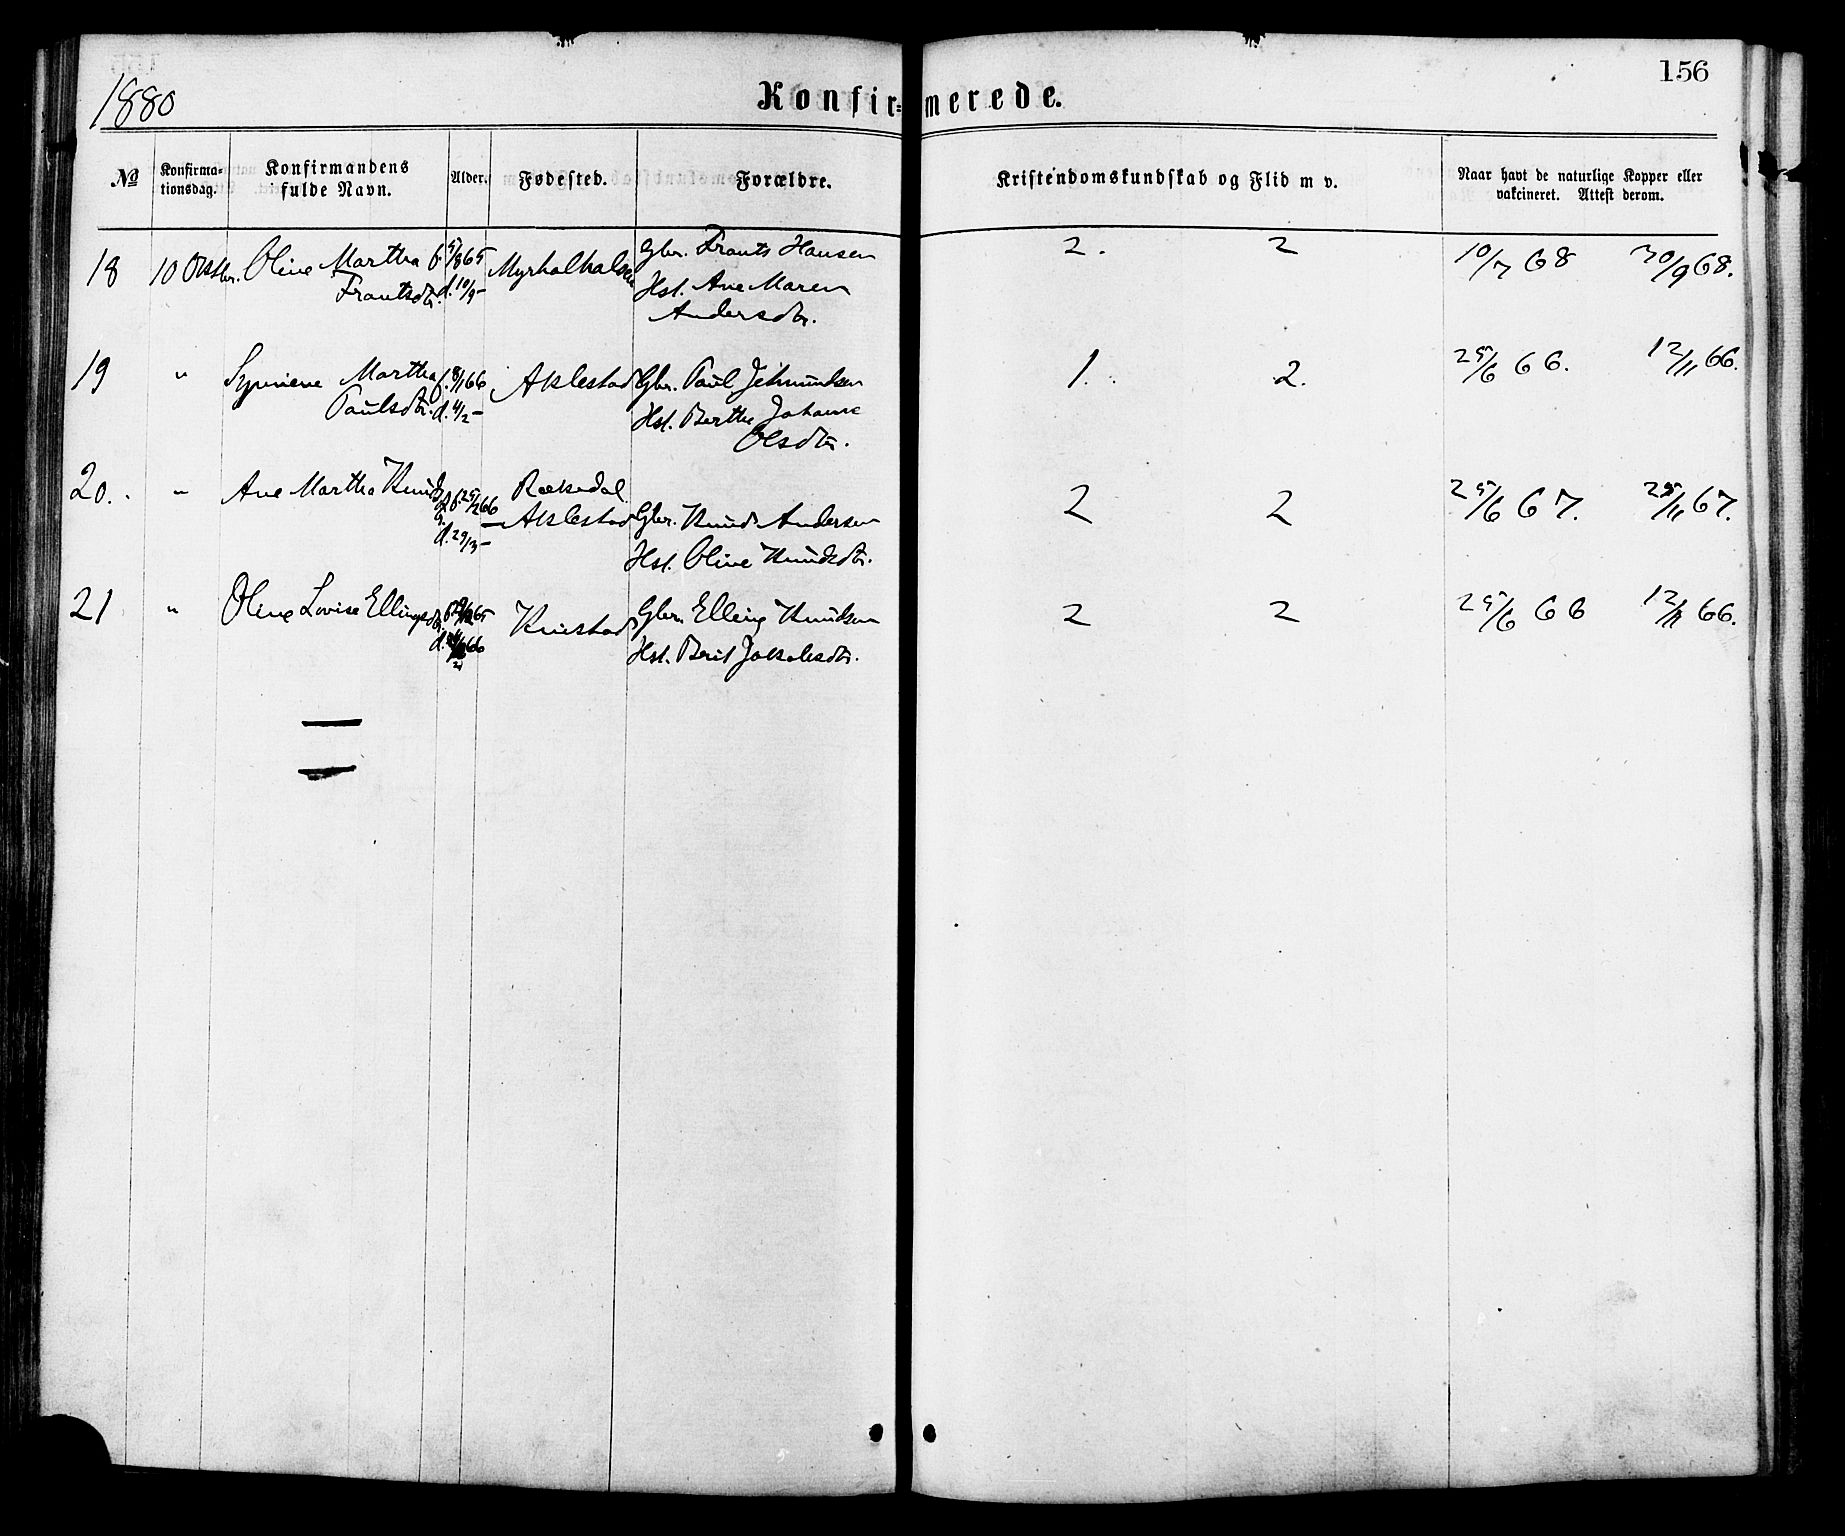 156
1880
Konfir=merede.
№ Konfirma=tionsdag. Konfirmandens fulde Navn. Alder. Fødested. Forældre. Kristendomskundskab og Flid m v. Naar havt de naturlige Kopper eller vakcineret. Attest derom.
18 10 Oktbr. Oline Martha f. 5/8 65 Gbr. Frants Hansen 2. 2 10/7 68 30/9 68.
Frantsdtr. d. 10/9 - Hst. Ane Maren
Andersdtr.
19 " Martha f. 8/1 66 Aklestad Gbr. Paul Jetmundsen 1. 2. 25/6 66. 12/11 66.
Paulsdtr. d. 4/2 - Hst. Berthe Johanne
Olsdtr.
20. " Ane Martha Knudsdtr. f. 25/2 66 Rækedal
Aklestad Gbr. Knud Andersen 2 2 25/6 67. 25/11 67.
d. 29/3 - Hst. Oline Knudsdtr.
21 " Oline Lovise Ellingsdtr. Knistad Gbr. Elling Knudsen 2 2 25/6 66 12/11 66.
Hst. Berit Jakobsdtr.